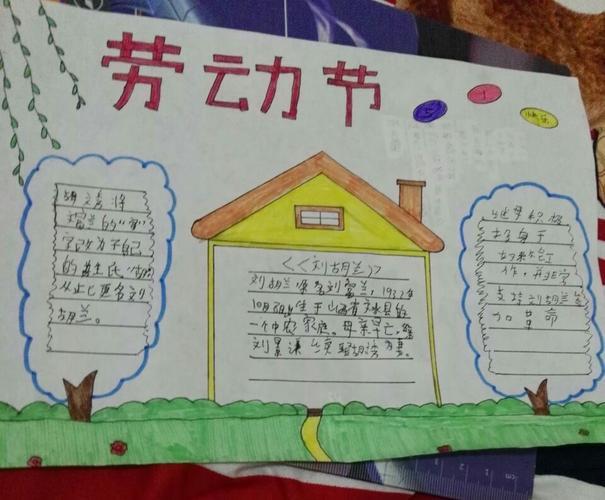 劳动节
5
1
快乐
胡文秀将
富兰的"富"
字改为了自己
的姓氏"胡"
从此更名刘
胡兰。
《刘胡兰》
刘胡兰原名刘富兰,1932年
10月8日生于山西省文水县的
一个中农家庭。母亲早亡,
刘景谦 娶胡文秀为妻。
积极
妇女
工作,并
支持刘胡兰参
加革命